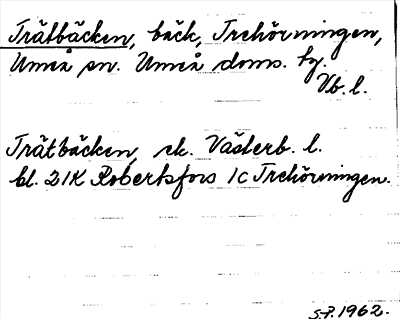 Trätbäcken, bäck, Trehörningen,
Umeå sn. Umeå doms. hg.
Vb. l.
Trätbäcken, ek. Västerb. l.
bl. 21K Robertsfors 1c Trehörningen.
S.P. 1962.